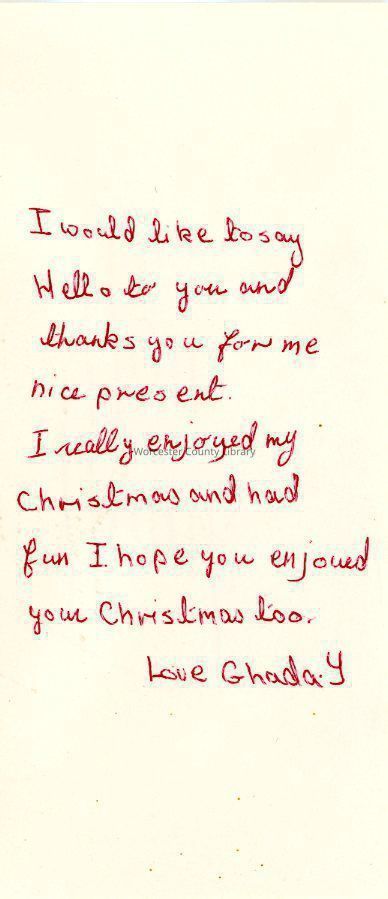 I would like to say
Hello to you and
thanks you for me
nice present.
I really enjoyed my
Worcester County Library
Christmas and had
fun I hope you enjoued
your Christmas too.
Love Ghada.Y